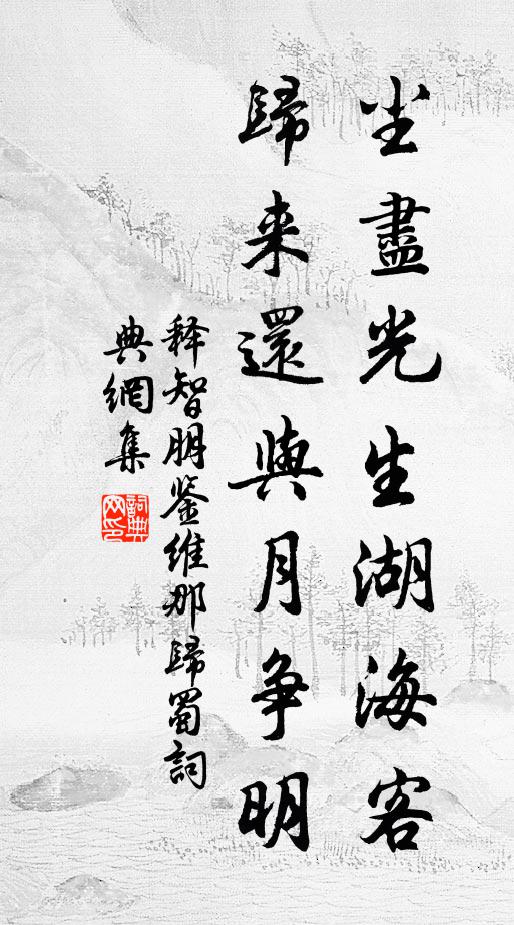 尘盡光生湖海客
歸来還與月争明
释智朋鉴維那歸蜀詞
典網集
詞典網印